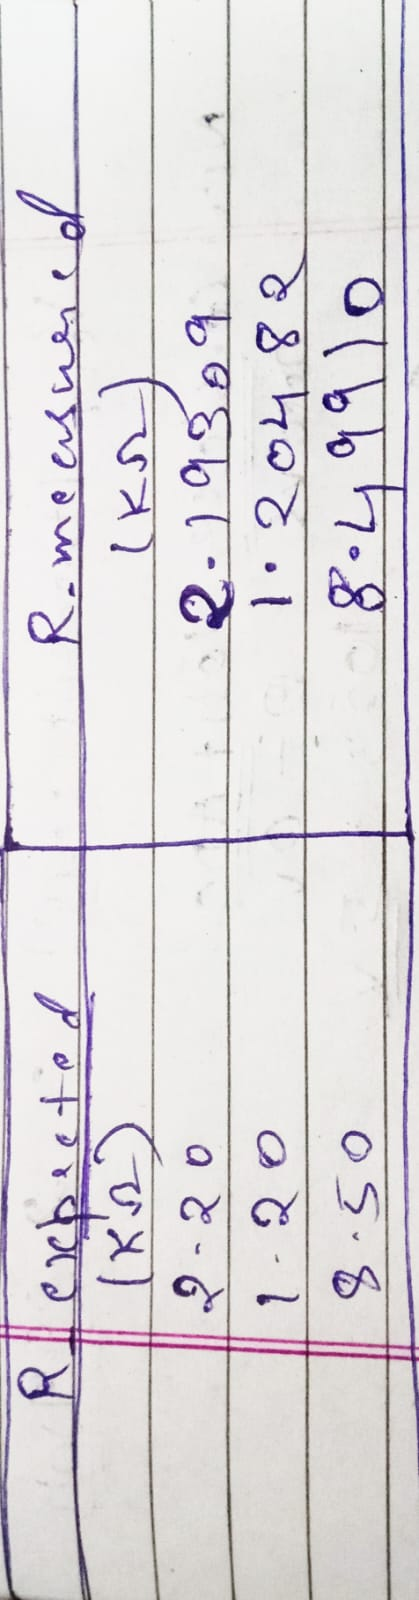 R expected R-measured
(KΩ) (KΩ)
2.20 2.19309
1.20 1.20482
8.50 8.49910